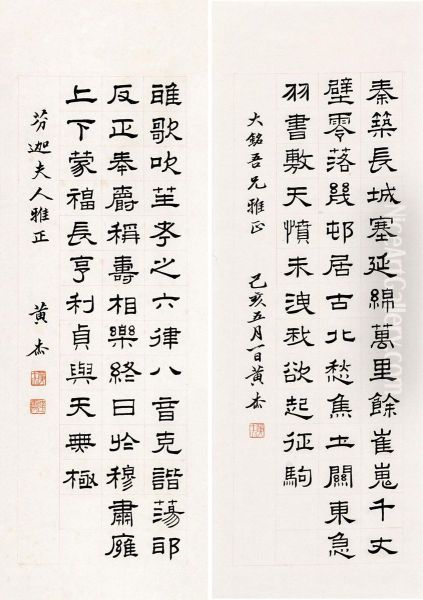 秦築長城塞延綿萬里餘崔嵬千丈
壁零落幾邨居古北愁焦土關東急
羽書敷天憤未洩我欲起征駒
大銘吾兄雅正 己亥五月一日黃杰
雅歌吹笙考之六律八音克諧蕩邪
反正奉爵稱壽相樂終日於穆肅雍
上下蒙福長亨利貞與天無極
芬迦夫人雅正 黃杰